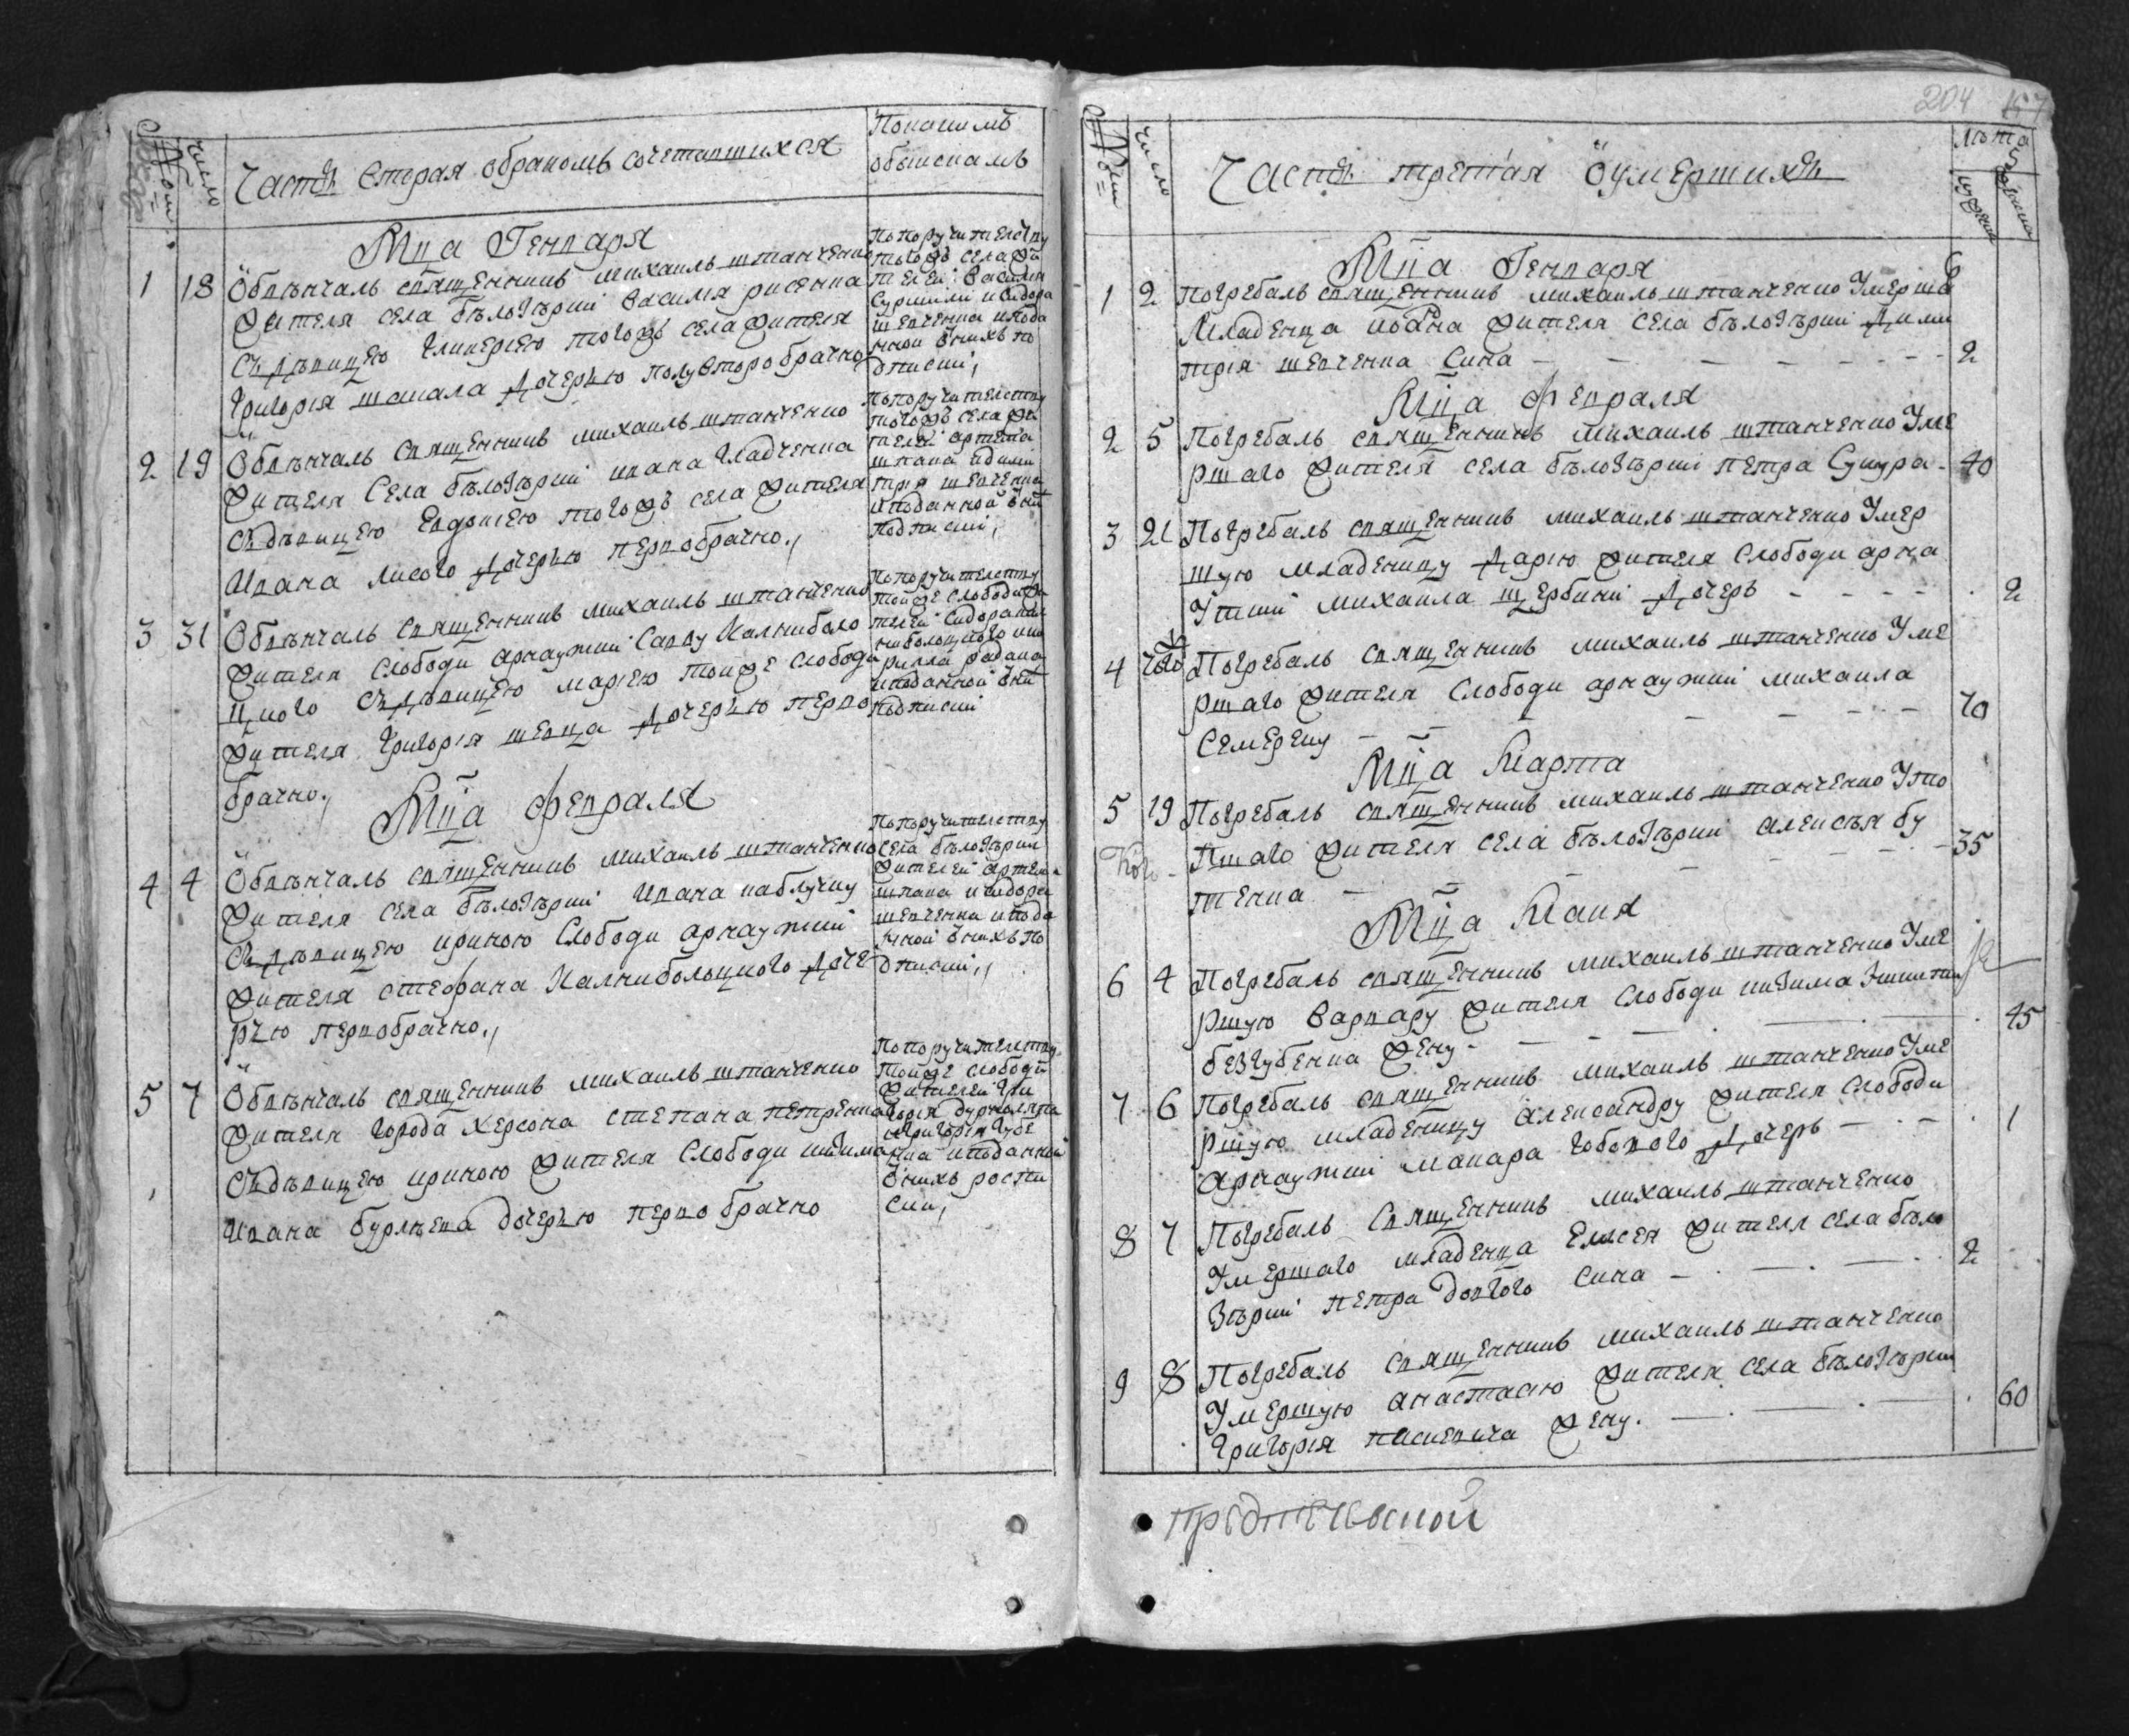 Число
Часть вторая обракомъ сочетавшихся
По какимъ
обыскамъ
Мца Генваря
1 18 Обвѣнчалъ священникъ михаилъ штанченко
жителя села бѣлозѣрки василия рисенка
съ дѣвицею гликериею тогожъ села жителя
григорія шакала дочерью полувторобрачно
По поручителству
тогожъ села жи
телей василия
и сидора
шевченка и пода
нной ѿ нихъ по
дписки,
2 19 Обвѣнчалъ священникъ михаилъ штанченко
жителя Села бѣлозѣрки ивана гладченка
съ дѣвицею Евдокиею тогожъ села жителя
Ивана лисого дочерью первобрачно.,
По поручителству
тогожъ села жи
телей артема
шпака и дими
трія шевченка
и поданной ѿ ни
подписки,
3 31 Обвѣнчалъ священникъ михаилъ штанченко
жителя Слободи арнаутки Савву Калниболо
цкого съ дѣвицею мариею тойже слободи
жителя григорія шевца дочерью перво
брачно.,
По поручителству
тойже слободи жи
телей Сидора кал
ниболоцкого и ки
рилла
и поданной ѿ ни
подписки
Мца февраля
4 4 Обвѣнчалъ священникъ михаилъ штанченко
жителя села бѣлозѣрки Ивана каблучку
съ дѣвицею ириною Слободи арнаутки
жителя стефана Калниболоцкого доче
рью первобрачно.,
По поручителству
села бѣлозѣрки
жителей артема
шпака и сидора
шевченка и пода
нной ѿ нихъ по
дписки,,
5 7 Обвѣнчалъ священникъ михаилъ штанченко
жителя города херсона степана петренка
съ дѣвицею ириною жителя Слободи кизима
Ивана бурлѣева дочерью первобрачно
По поручителству
тойже слободи
жителей гри
горія
и григорія губе
нка и поданной
ѿ нихъ распи
ски,
204
Число
Часть третая ѿ умершихъ
Лѣта
Мца Генваря
1 2 Погребалъ священникъ михаилъ штанченко Умерша
Младенца иоанна жителя села бѣлозѣрки Дими
трія шевченка Сина — 2
Мца февраля
2 5 Погребалъ священникъ михаилъ штанченко Уме
ршаго жителя села бѣлозѣрки петра — 40
3 21 Погребалъ священникъ михаилъ штанченко Умер
шую младеницу Дарію жителя Слободи арна
Утки михаила щербини Дочерь — 2
4 Погребалъ священникъ михаилъ штанченко Уме
ршаго жителя Слободи арнаутки михаила
Семереку — 70
Мца Марта
5 19 Погребалъ священникъ михаилъ штанченко Уто
пшаго жителя села бѣлозѣрки алексѣя бу
тенка — 35
Мца Маия
6 4 Погребалъ священникъ михаилъ штанченко Уме
ршую Варвару жителя Слободи кизима
беззубенка Жену — 45
7 6 Погребалъ священникъ михаилъ штанченко Уме
ршую младеницу александру жителя слободи
арнаутки макара Дочерь — 1
8 7 Погребалъ Священникъ михаилъ штанченко
Умершаго младенца Елисея жителя села бѣло
зѣрки петра довгого Сина — 2
9 8 Погребалъ священникъ михаилъ штанченко
Умершую анастасию жителя села бѣлозѣрки
григорія Жену. — 60